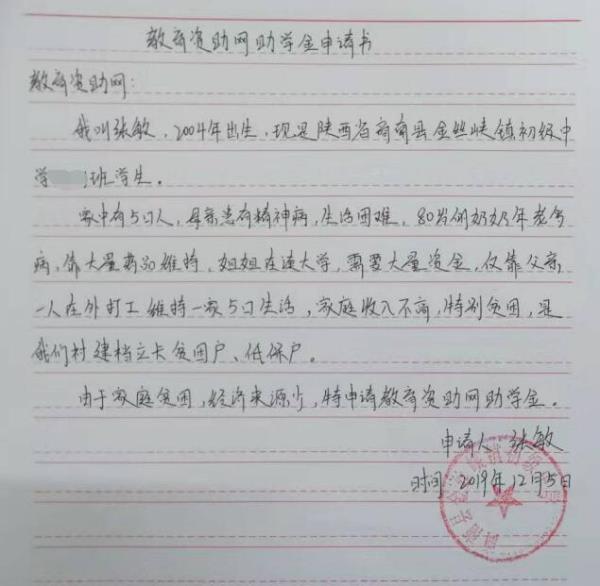 教育资助网助学金申请书
教育资助网:
我叫张敏，2004年出生，现是陕西省商南县金丝峡镇初级中
学班学生。
家中有5口人，母亲患有精神病，生活困难，80岁的奶奶年老多
病，靠大量药品维持，姐姐在读大学，需要大量资金，仅靠父亲
一人在外打工维持一家5口生活，家庭收入不高，特别贫困，是
我们村建档立卡贫困户、低保户。
由于家庭贫困，经济来源少，特申请教育资助网助学金。
申请人 张敏
时间 2019年12月5日